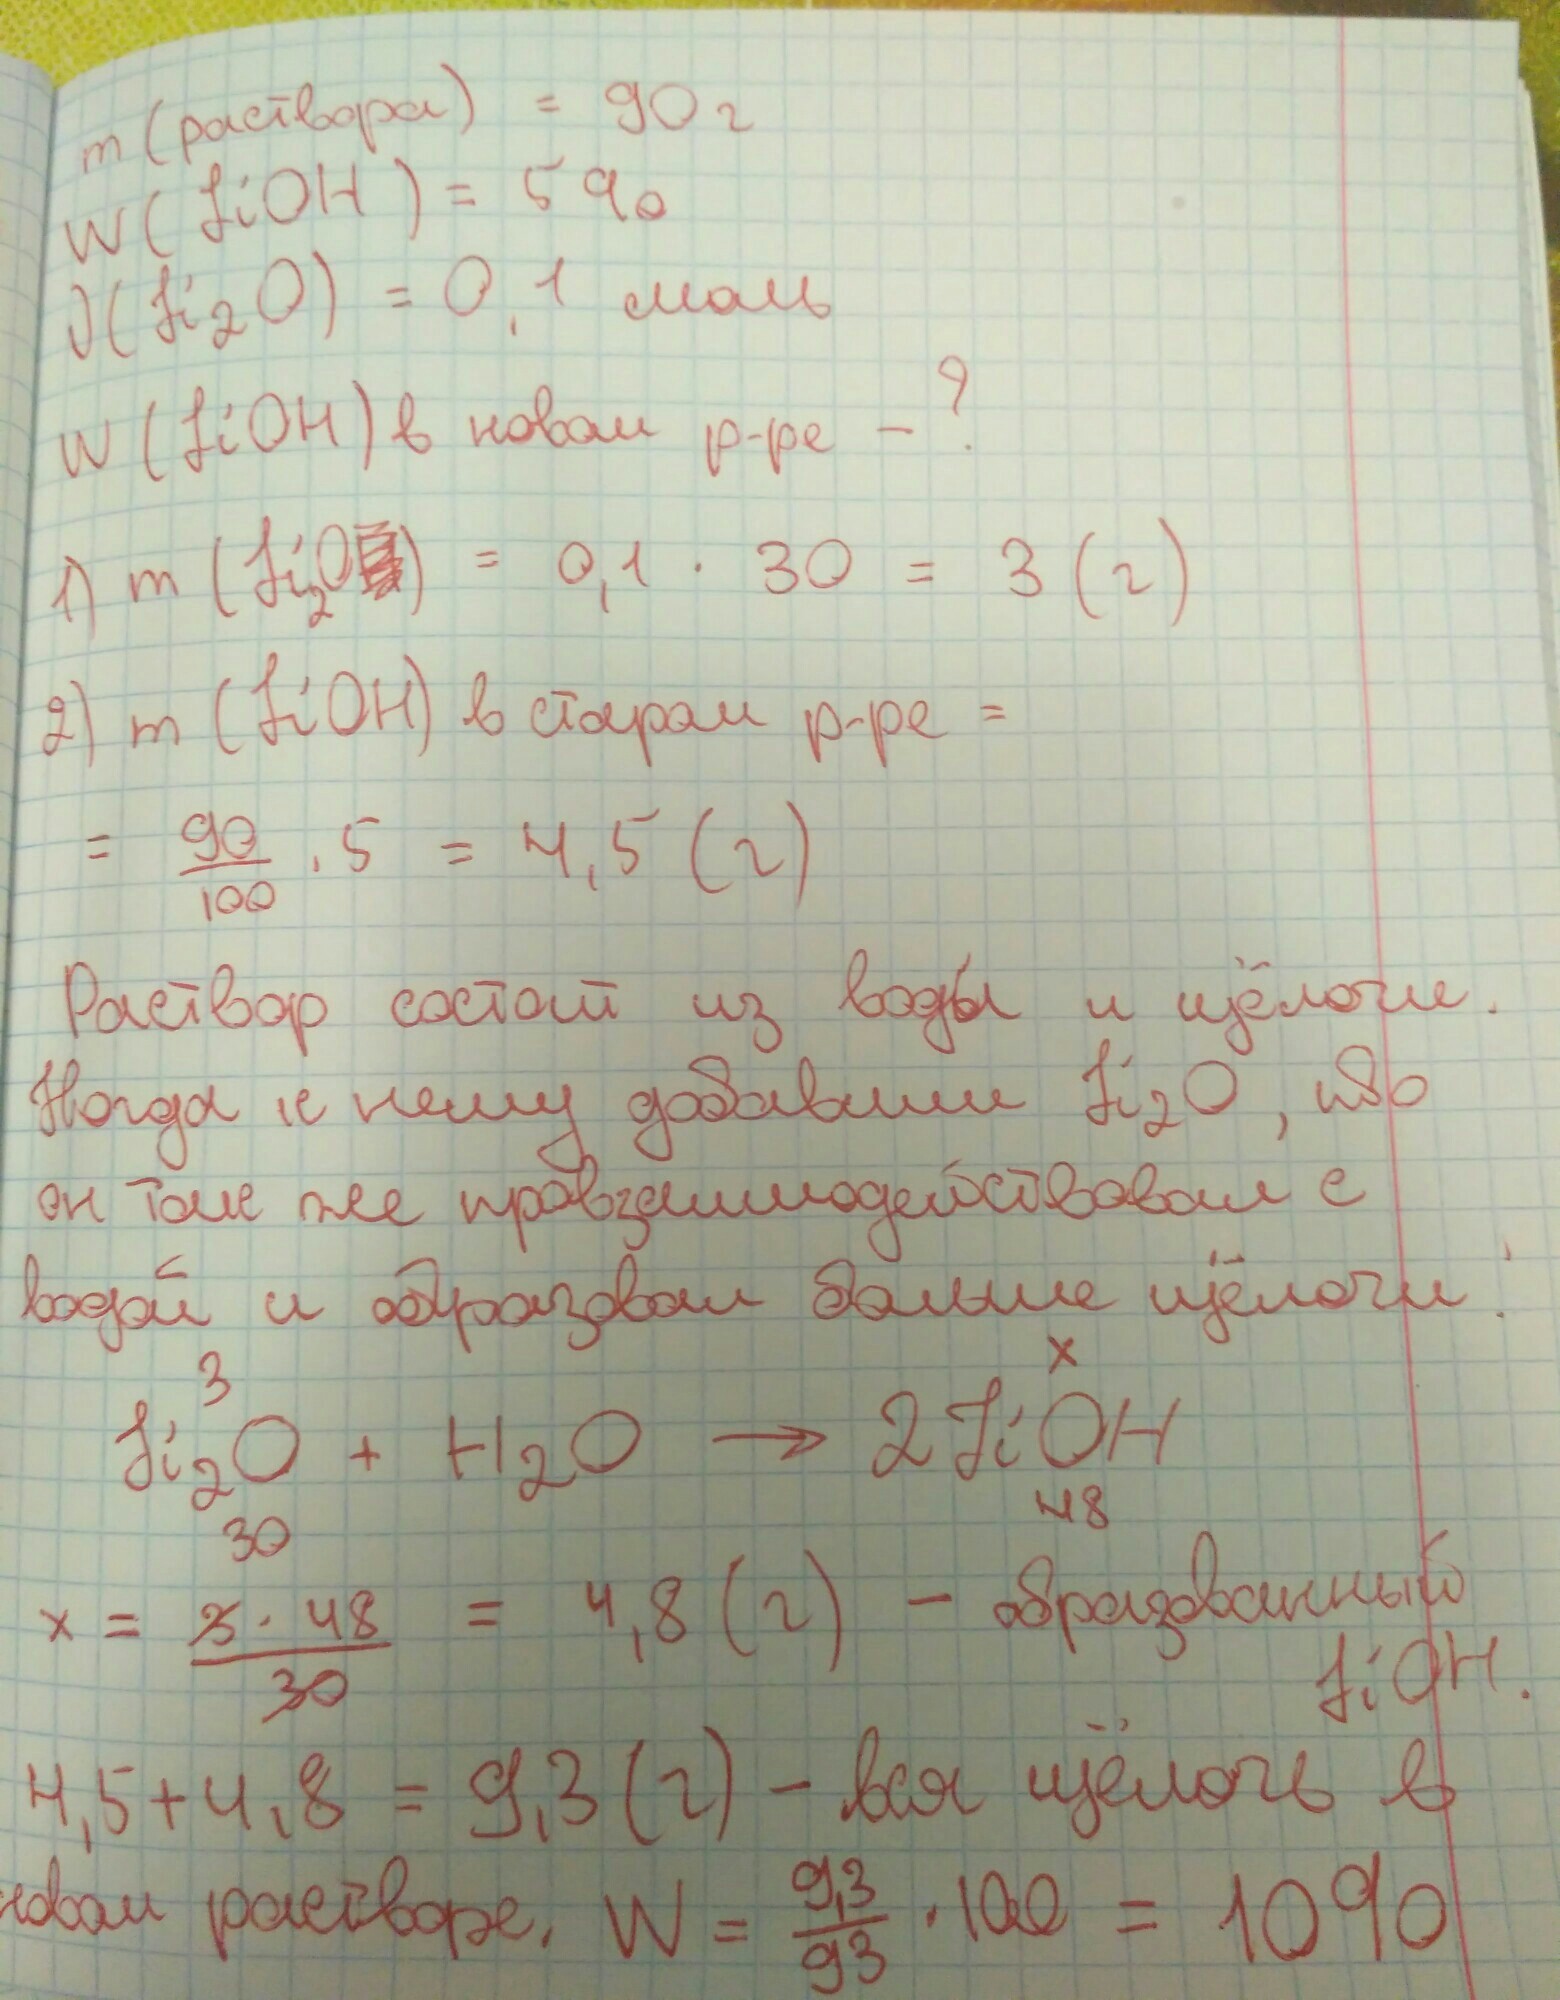 m (раствора) = 90 г
W (LiOH) = 5 %
ν (Li₂O) = 0,1 моль
W (LiOH) в новом р-ре - ?
1) m (Li₂O) = 0,1 · 30 = 3 (г)
2) m (LiOH) в старом р-ре =
= 90/100 · 5 = 4,5 (г)
Раствор состоит из воды и щёлочи.
Когда к нему добавили Li₂O, то
он так же провзаимодействовал с
водой и образовал больше щёлочи:
3 x
Li₂O + H₂O → 2LiOH
30 48
x = 3 · 48/30 = 4,8 (г) - образованный
LiOH.
4,5 + 4,8 = 9,3 (г) - вся щёлочь в
новом растворе. W = 9,3/93 · 100 = 10%